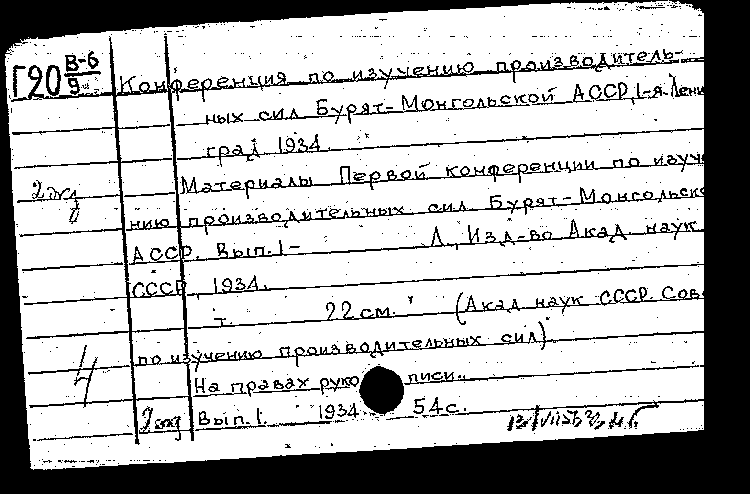 Г20 В-6/9 Конференция по изучению производитель-
ных сил Бурят-Монгольской АССР, 1-я. Лени
град 1934.
2 экз Материалы Первой конференции по изуч
нию производительных сил Бурят-Монгольско
АССР. Вып. 1- Л., Изд-во Акад. наук
СССР, 1934.
т. 22 см. (Акад наук СССР. Сов
по изучению производительных сил).
4 На правах руко писи.
2 экз Вып. 1. 1934. 54 с.